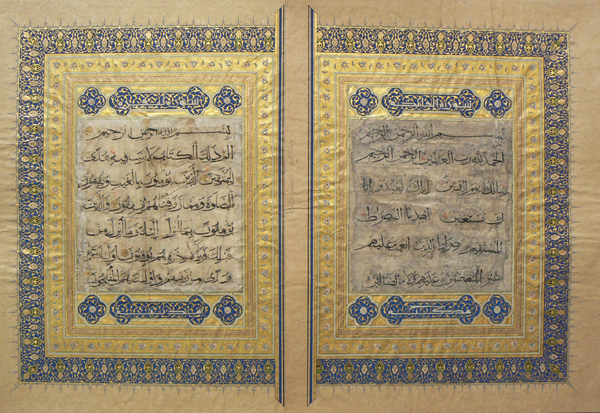 بسم الله الرحمن الرحيم
الحمد لله رب العالمين الرحمن الرحيم
مالك يوم الدين اياك نعبد و ايا
ك نستعين اهدنا الصراط
المستقيم صراط الذين انعمت عليهم
غير المغضوب عليهم ولا الضالين
بسم الله الرحمن الرحيم
الم ذلك الكتاب لا ريب فيه هدى
للمتقين الذين يؤمنون بالغيب ويقيمون
الصلوة ومما رزقناهم ينفقون والذين
يؤمنون بما انزل اليك وما انزل من
قبلك وبالاخرة هم يوقنون اولئك على
هدى من ربهم واولئك هم المفلحون